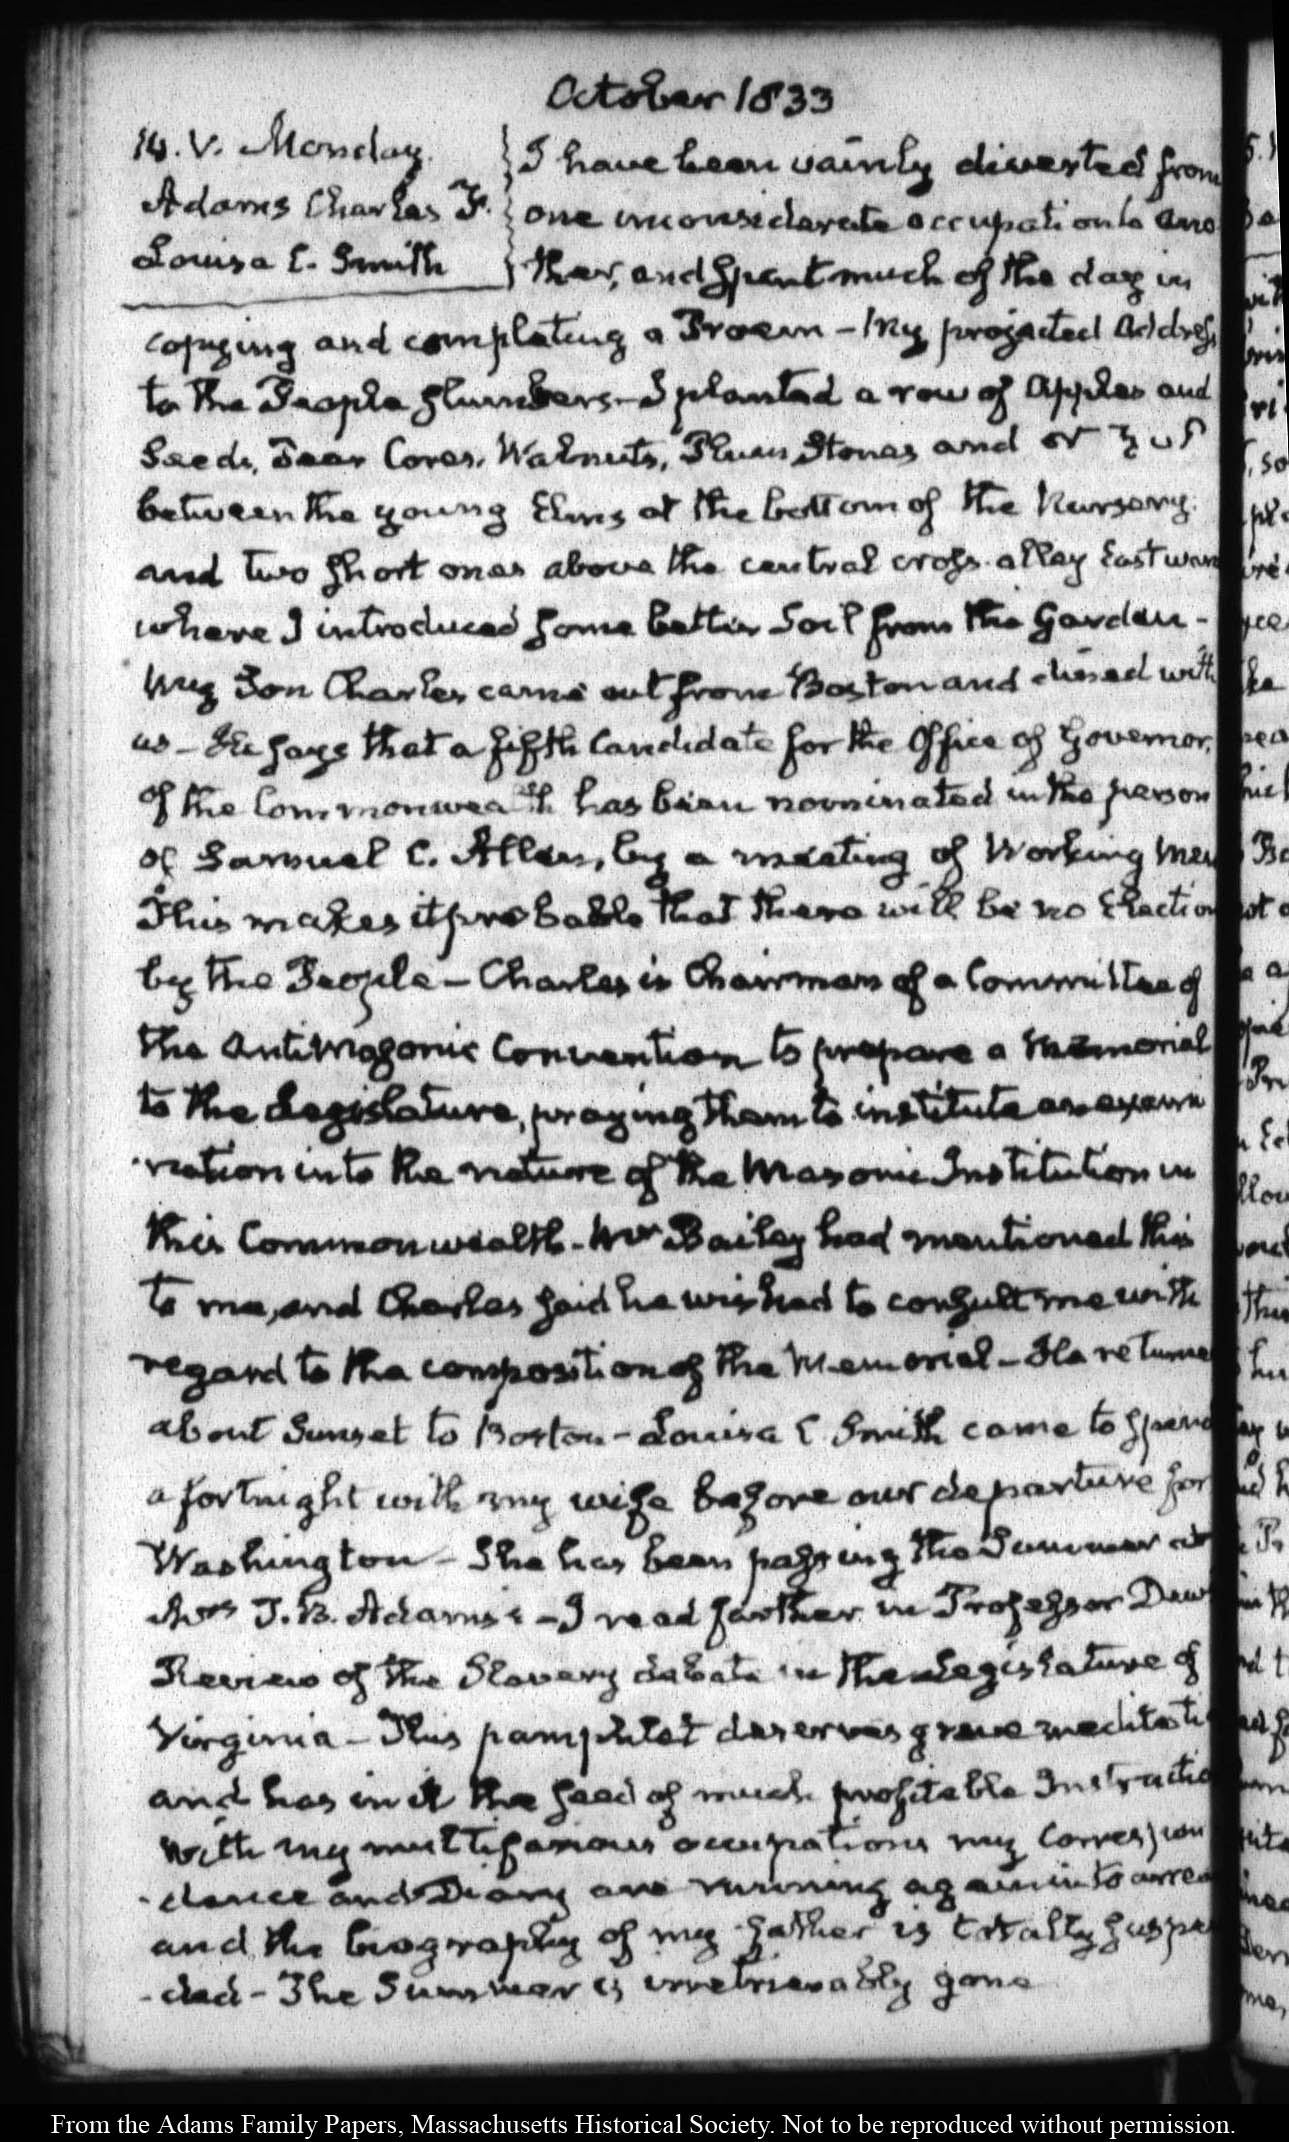 October 1833
14. V. Monday.
Adams Charles F.
Louisa C. Smith
I have been vainly diverted from
one inconsiderate occupation to ano
ther, and spent much of the day in
copying and completing a Proem - My projected Address
to the People slumbers - I planted a row of Apples and
Seeds, Pear Cores, Walnuts, Plum Stones and
between the young Elms at the bottom of the Nursery.
and two short ones above the central cross-alley Eastward
where I introduced some better Soil from the Garden -
My Son Charles came out from Boston and dined with
us - He says that a fifth Candidate for the Office of Governor,
of the Commonwealth has been nominated in the person
of Samuel C. Allen, by a meeting of Working Men
This makes it probable that there will be no Election
by the People - Charles is Chairman of a Committee of
the Antimasonic Convention to prepare a Memorial
to the Legislature, praying them to institute an exami
nation into the nature of the Masonic Institution in
this Commonwealth - Mr Bailey had mentioned this
to me, and Charles said he wished to consult me with
regard to the composition of the Memorial - He returned
about Sunset to Boston - Louisa C Smith came to spend
a fortnight with my wife before our departure for
Washington - She has been passing the Summer at
Mrs T. B. Adams's - I read further in Professor Dew's
Review of the Slavery debate in the Legislature of
Virginia - This pamphlet deserves grave meditati
and has in it the seed of much profitable Instructio
With my multifarious occupations my Correspon
-dence and Diary are running again into arrea
and the biography of my father is totally suspe
-ded - The Summer is irretrievably gone
From the Adams Family Papers, Massachusetts Historical Society. Not to be reproduced without permission.